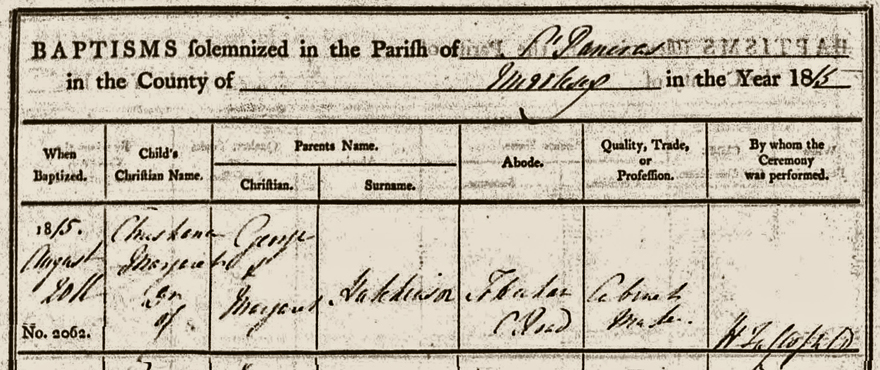 BAPTISMS ſolemnized in the Pariſh of St Pancras
in the County of Middlesex in the Year 1815
When Baptized.
Child's Chriſtian Name.
Parents Name.
Chriſtian.
Surname.
Abode.
Quality, Trade, or Profeſſion.
By whom the Ceremony was performed.
1815.
August
20th
No. 2062.
Margaret
of
George
&
Margaret
Hutchinson
Road
Cabinet
Maker